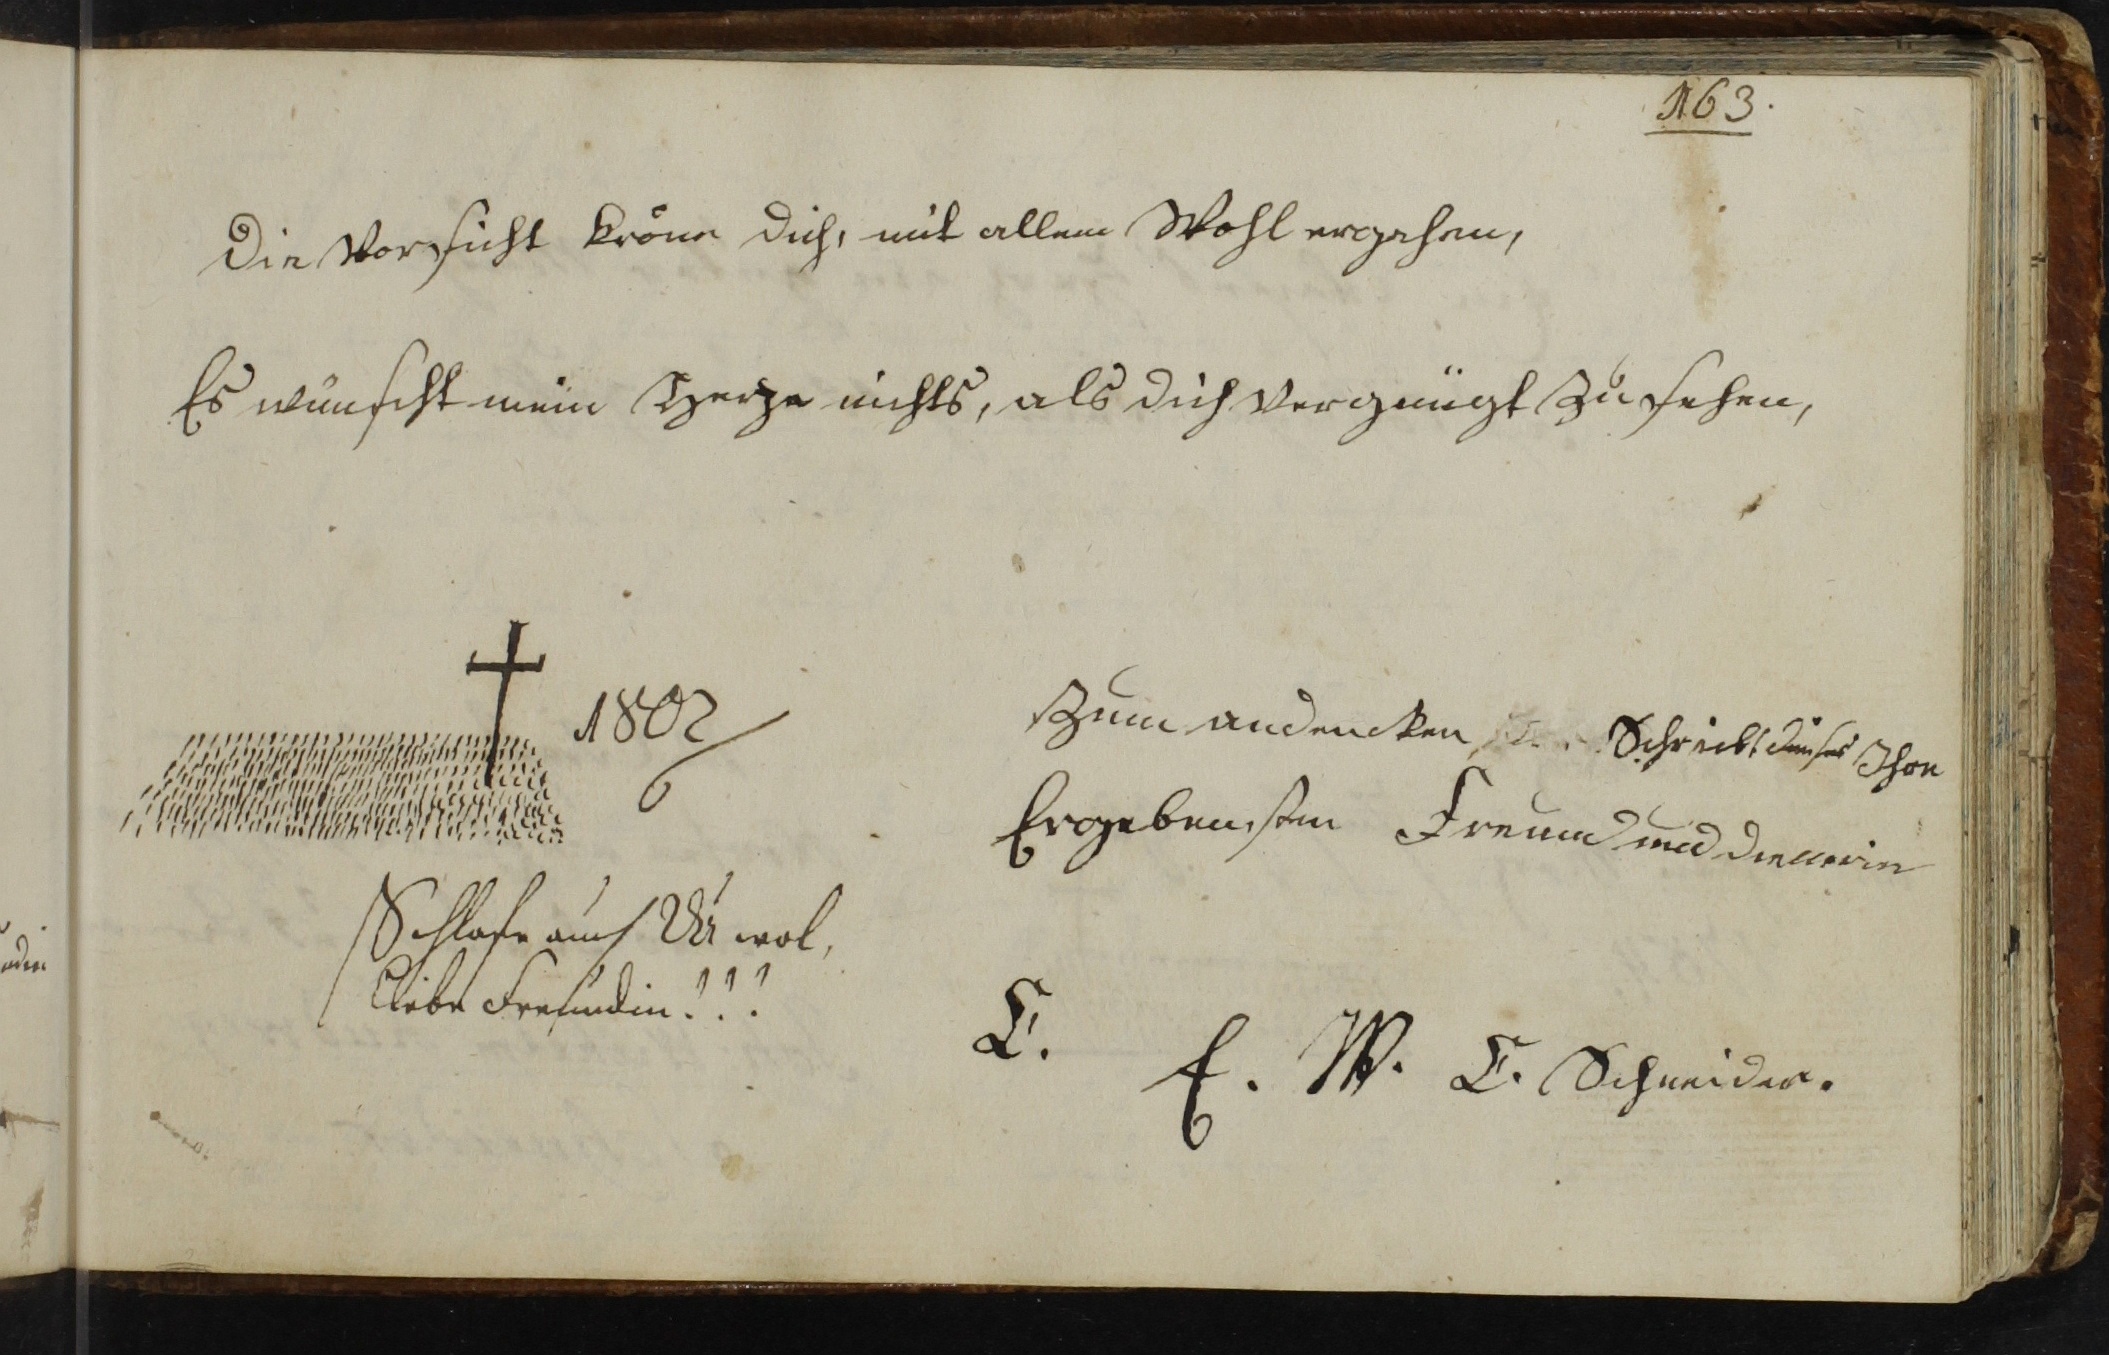 163.
Die Vorsicht kröne dich, mit allem Wohl ergehen,
Es wünscht mein Herze nichts, als dich Vergnügt Zu sehen,
1802
Zum andencken Schreibt dieses Ihre
Ergebensten Freund und dienerin
Schlafe auch Du wol,
liebe Freundin!!!
C.
E. W. C. Schneider.